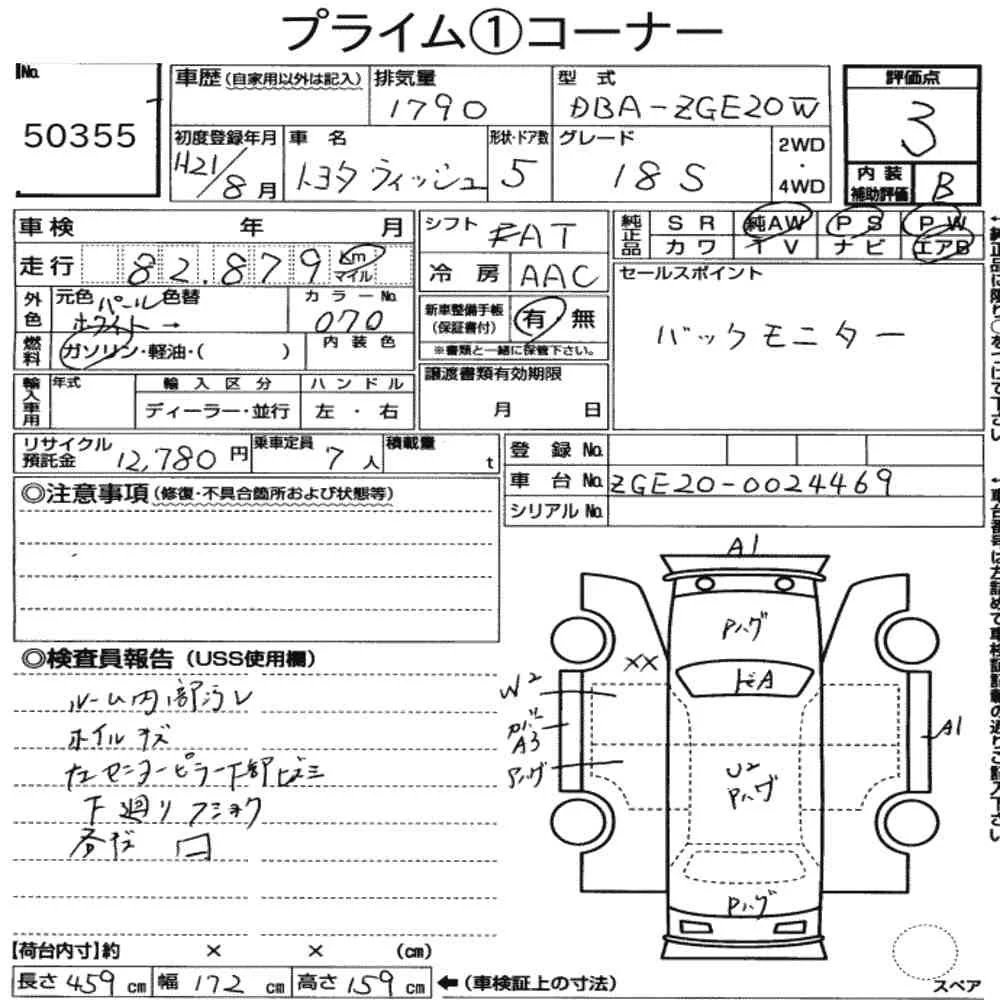 プライム①コーナー
No. 50355
車歴(自家用以外は記入) 排気量 型式
1790 DBA-ZGE20W
評価点 3
初度登録年月 車名 形状・ドア数 グレード 2WD・4WD
H21/8月 トヨタ ウィッシュ 5 18S
内装補助評価 B
車検 年 月 シフト FAT
純正品 SR 純AW PS PW
カワ TV ナビ エアB
走行 82.879 Km マイル
冷房 AAC
セールスポイント
バックモニター
外色 元色 パールホワイト → 色替 カラーNo. 070
新車整備手帳(保証書付) 有 無
※書類と一緒に保管下さい。
燃料 ガソリン・軽油・( ) 内装色
輸入車用 年式 輸入区分 ハンドル
ディーラー・並行 左・右
譲渡書類有効期限
月 日
リサイクル預託金 12,780円 乗車定員 7人 積載量 t
登録No.
車台No. ZGE20-0024469
シリアルNo.
◎注意事項(修復・不具合箇所および状態等)
◎検査員報告(USS使用欄)
ルーム内部汚レ
ホイルキズ
左センターピラー下部凹ミ
下廻りフショク
A1
Pハゲ
XX
ドA
W2
A3
Pハゲ
A1
U2
Pハゲ
Pハゲ
【荷台内寸】約 × × (cm)
長さ 459 cm 幅 172 cm 高さ 159 cm ←(車検証上の寸法)
スペア
←純正品に限り○をつけて下さい